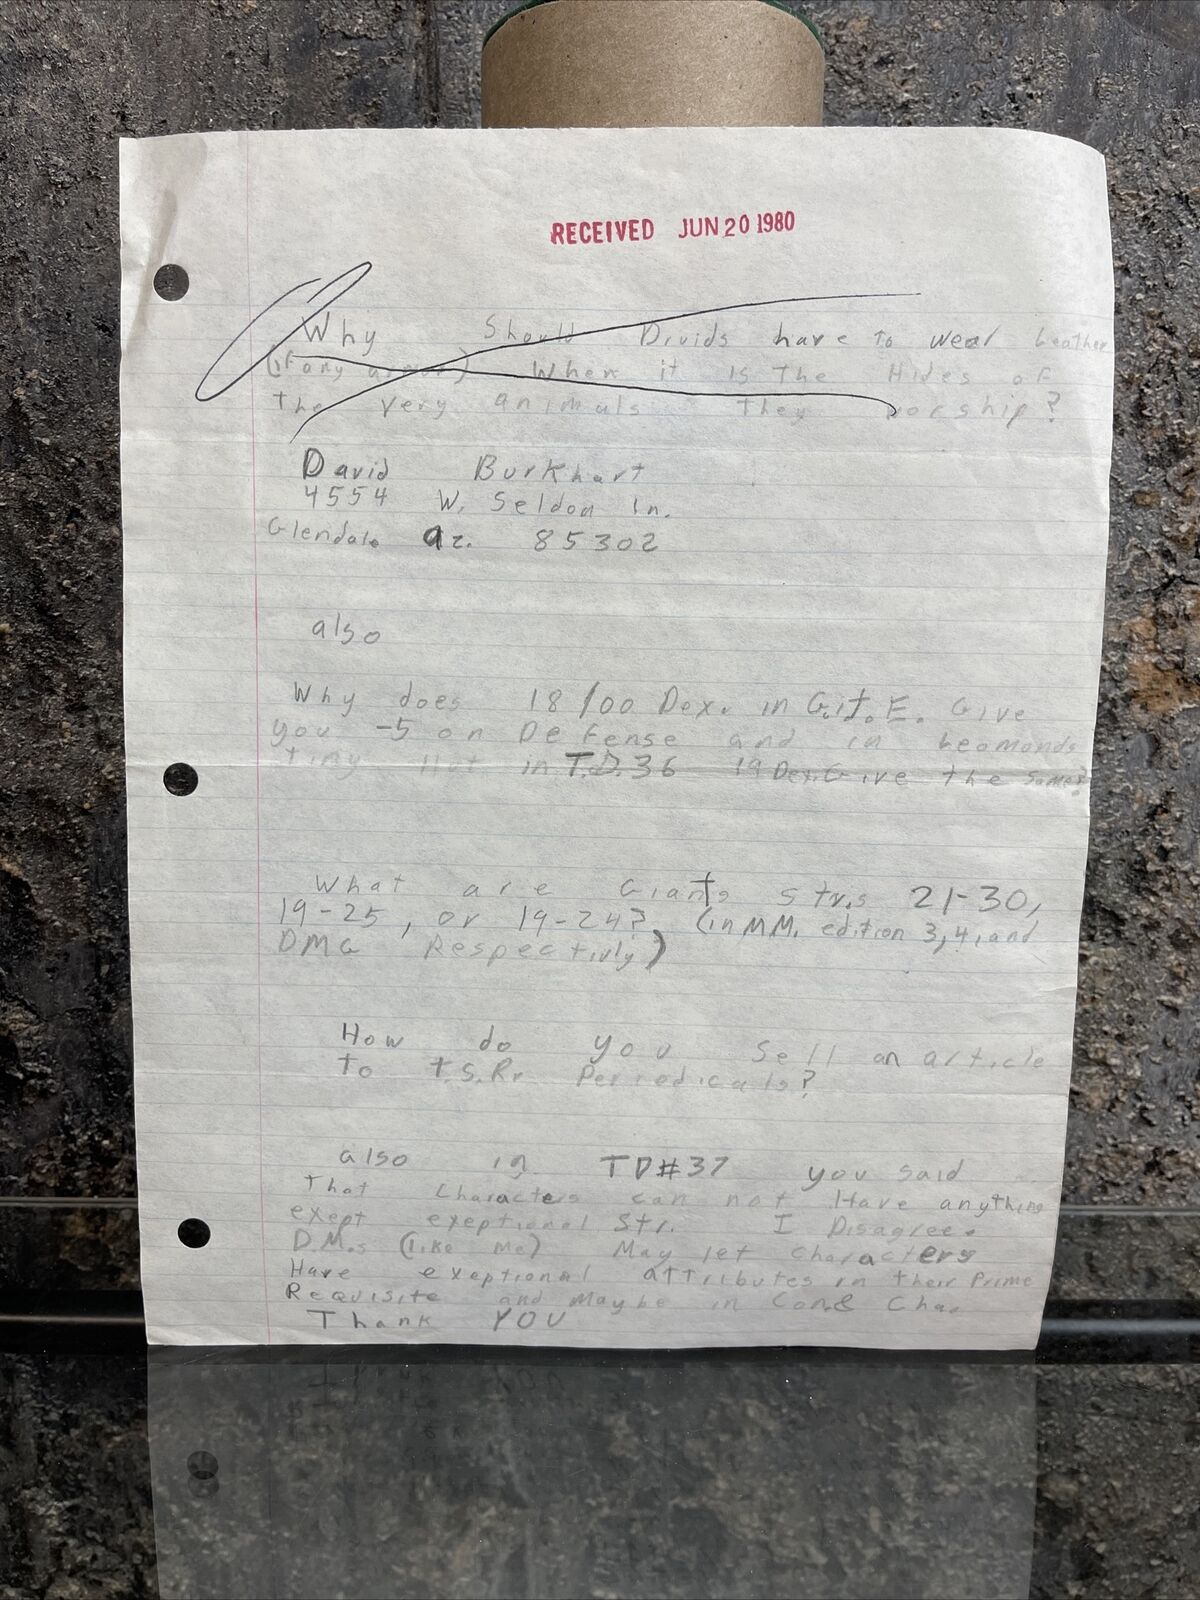 RECEIVED JUN 20 1980
Why Should Druids have to wear Leather
(if any armor) When it is The Hides of
The very animals they worship?
David Burkhart
4554 W. Seldon ln.
Glendale az. 85302
also
Why does 18/00 Dex. in G.it.E. Give
you -5 on Defense and in Leomonds
tiny Hut in T.D.36 19 Dex. Give the same?
What are Giants strs 21-30,
19-25, or 19-24? (in MM, edition 3,4, and
DMG Respectivly)
How do you Sell an article
To T.S.R. Periedicals?
also in TD#37 you said
That Characters can not Have anything
exept exeptional Str. I Disagree.
D.M.s (like me) May let characters
Have exeptional attributes in their Prime
Requisite and Maybe in Con.& Cha.
Thank YOU